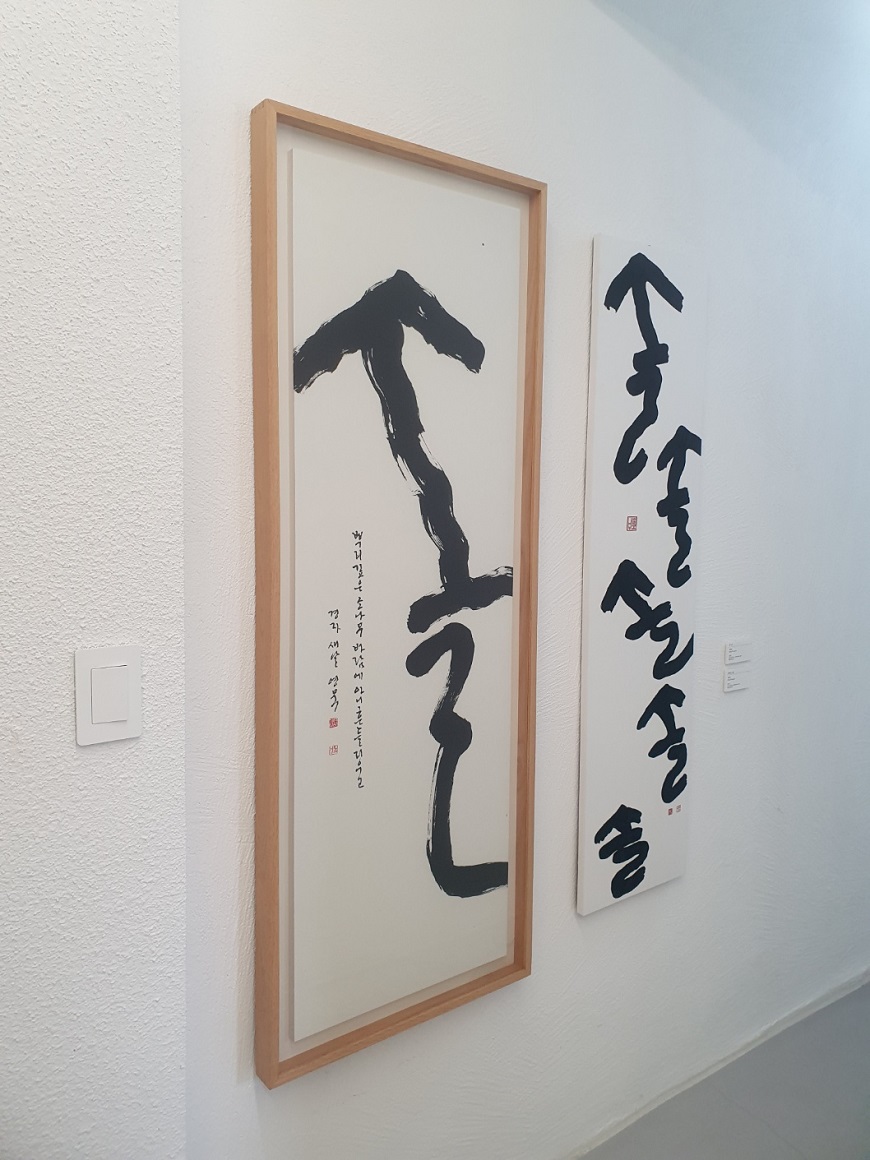 솔
뿌리깊은 소나무 바람에 아니 흔들리우고
경자 영묵
솔
솔
솔
솔
솔